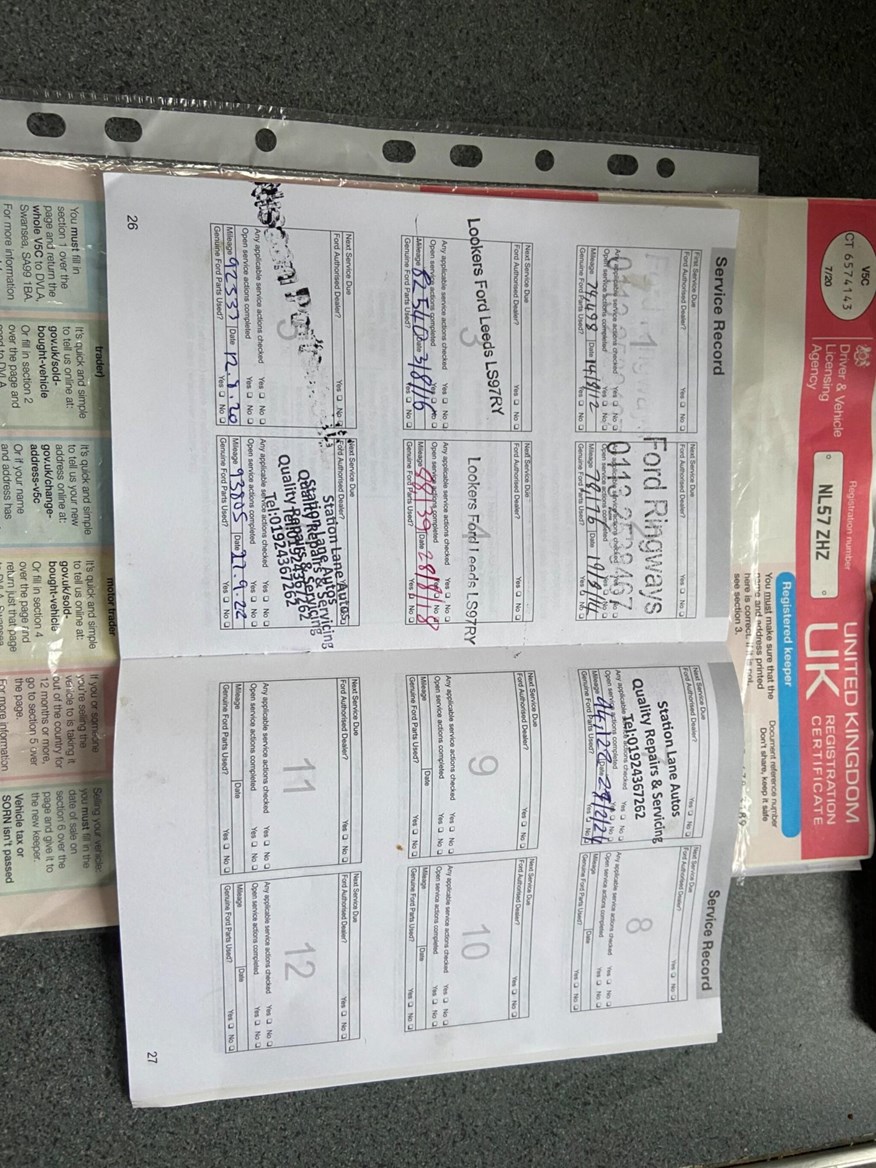 V5C
CT 6574143
7/20
Driver & Vehicle
Licensing
Agency
Registration number
NL57 ZHZ
UNITED KINGDOM
UK
REGISTRATION
CERTIFICATE
Registered keeper
You must make sure that the
name and address printed
here is correct. If it is not
see section 3.
Document reference number
Don't share, keep it safe
Service Record
First Service Due
Ford Authorised Dealer? Yes No
1
Open service actions completed Yes No
Mileage 74,098 Date 14/9/12
Genuine Ford Parts Used? Yes No
Next Service Due
Ford Authorised Dealer? Yes No
Ford Ringways
Open service actions completed Yes No
Mileage 78176 Date 19/8/14
Genuine Ford Parts Used? Yes No
Next Service Due
Ford Authorised Dealer? Yes No
Lookers Ford Leeds LS97RY
3
Any applicable service actions checked Yes No
Open service actions completed Yes No
Mileage 82540 Date 31/8/16
Genuine Ford Parts Used? Yes No
Next Service Due
Ford Authorised Dealer? Yes No
Lookers Ford Leeds LS97RY
4
Any applicable service actions checked Yes No
Open service actions completed Yes No
Mileage 88139 Date 28/8/18
Genuine Ford Parts Used? Yes No
Next Service Due
Ford Authorised Dealer? Yes No
5
Any applicable service actions checked Yes No
Open service actions completed Yes No
Mileage 92537 Date 12.9.20
Genuine Ford Parts Used? Yes No
Next Service Due
Ford Authorised Dealer? Yes No
Station Lane Autos
Quality Repairs & Servicing
Tel:01924367262
Any applicable service actions checked Yes No
Open service actions completed Yes No
Mileage 93805 Date 27.9.22
Genuine Ford Parts Used? Yes No
26
Service Record
Next Service Due
Ford Authorised Dealer? Yes No
Station Lane Autos
Quality Repairs & Servicing
Tel:01924367262
Any applicable service actions checked Yes No
Open service actions completed Yes No
Mileage Date
Genuine Ford Parts Used? Yes No
Next Service Due
Ford Authorised Dealer? Yes No
8
Any applicable service actions checked Yes No
Open service actions completed Yes No
Mileage Date
Genuine Ford Parts Used? Yes No
Next Service Due
Ford Authorised Dealer? Yes No
9
Any applicable service actions checked Yes No
Open service actions completed Yes No
Mileage Date
Genuine Ford Parts Used? Yes No
Next Service Due
Ford Authorised Dealer? Yes No
10
Any applicable service actions checked Yes No
Open service actions completed Yes No
Mileage Date
Genuine Ford Parts Used? Yes No
Next Service Due
Ford Authorised Dealer? Yes No
11
Any applicable service actions checked Yes No
Open service actions completed Yes No
Mileage Date
Genuine Ford Parts Used? Yes No
Next Service Due
Ford Authorised Dealer? Yes No
12
Any applicable service actions checked Yes No
Open service actions completed Yes No
Mileage Date
Genuine Ford Parts Used? Yes No
27
You must fill in
section 1 over the
page and return the
whole V5C to DVLA,
Swansea, SA99 1BA
For more information
trader)
It's quick and simple
to tell us online at:
gov.uk/sold-
bought-vehicle
Or fill in section 2
over the page and
It's quick and simple
to tell us your new
address online at:
gov.uk/change-
address-v5c
Or if your name
and address has
motor trader
It's quick and simple
to tell us online at:
gov.uk/sold-
bought-vehicle
Or fill in section 4
over the page and
return just that page
If you or someone
you're selling the
vehicle to is taking it
out of the country for
12 months or more,
go to section 5 over
the page.
For more information
Selling your vehicle:
you must fill in the
date of sale on
section 6 over the
page and give it to
the new keeper.
Vehicle tax or
SORN isn't passed